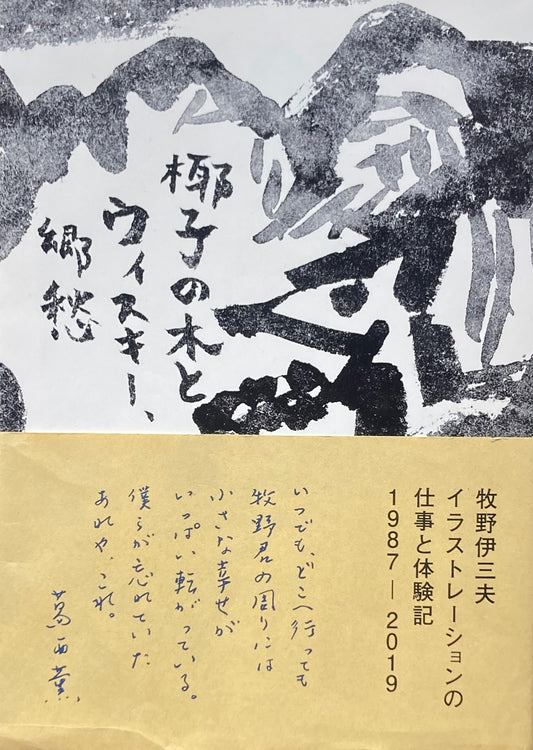 椰子の木と
ウィスキー、
郷愁
牧野伊三夫
イラストレーションの
仕事と体験記
1987 — 2019
いつでも、どこへ行っても
牧野君の周りには
小さな幸せが
いっぱい転がっている。
僕らが忘れていた
あれや、これ。
葛西薫